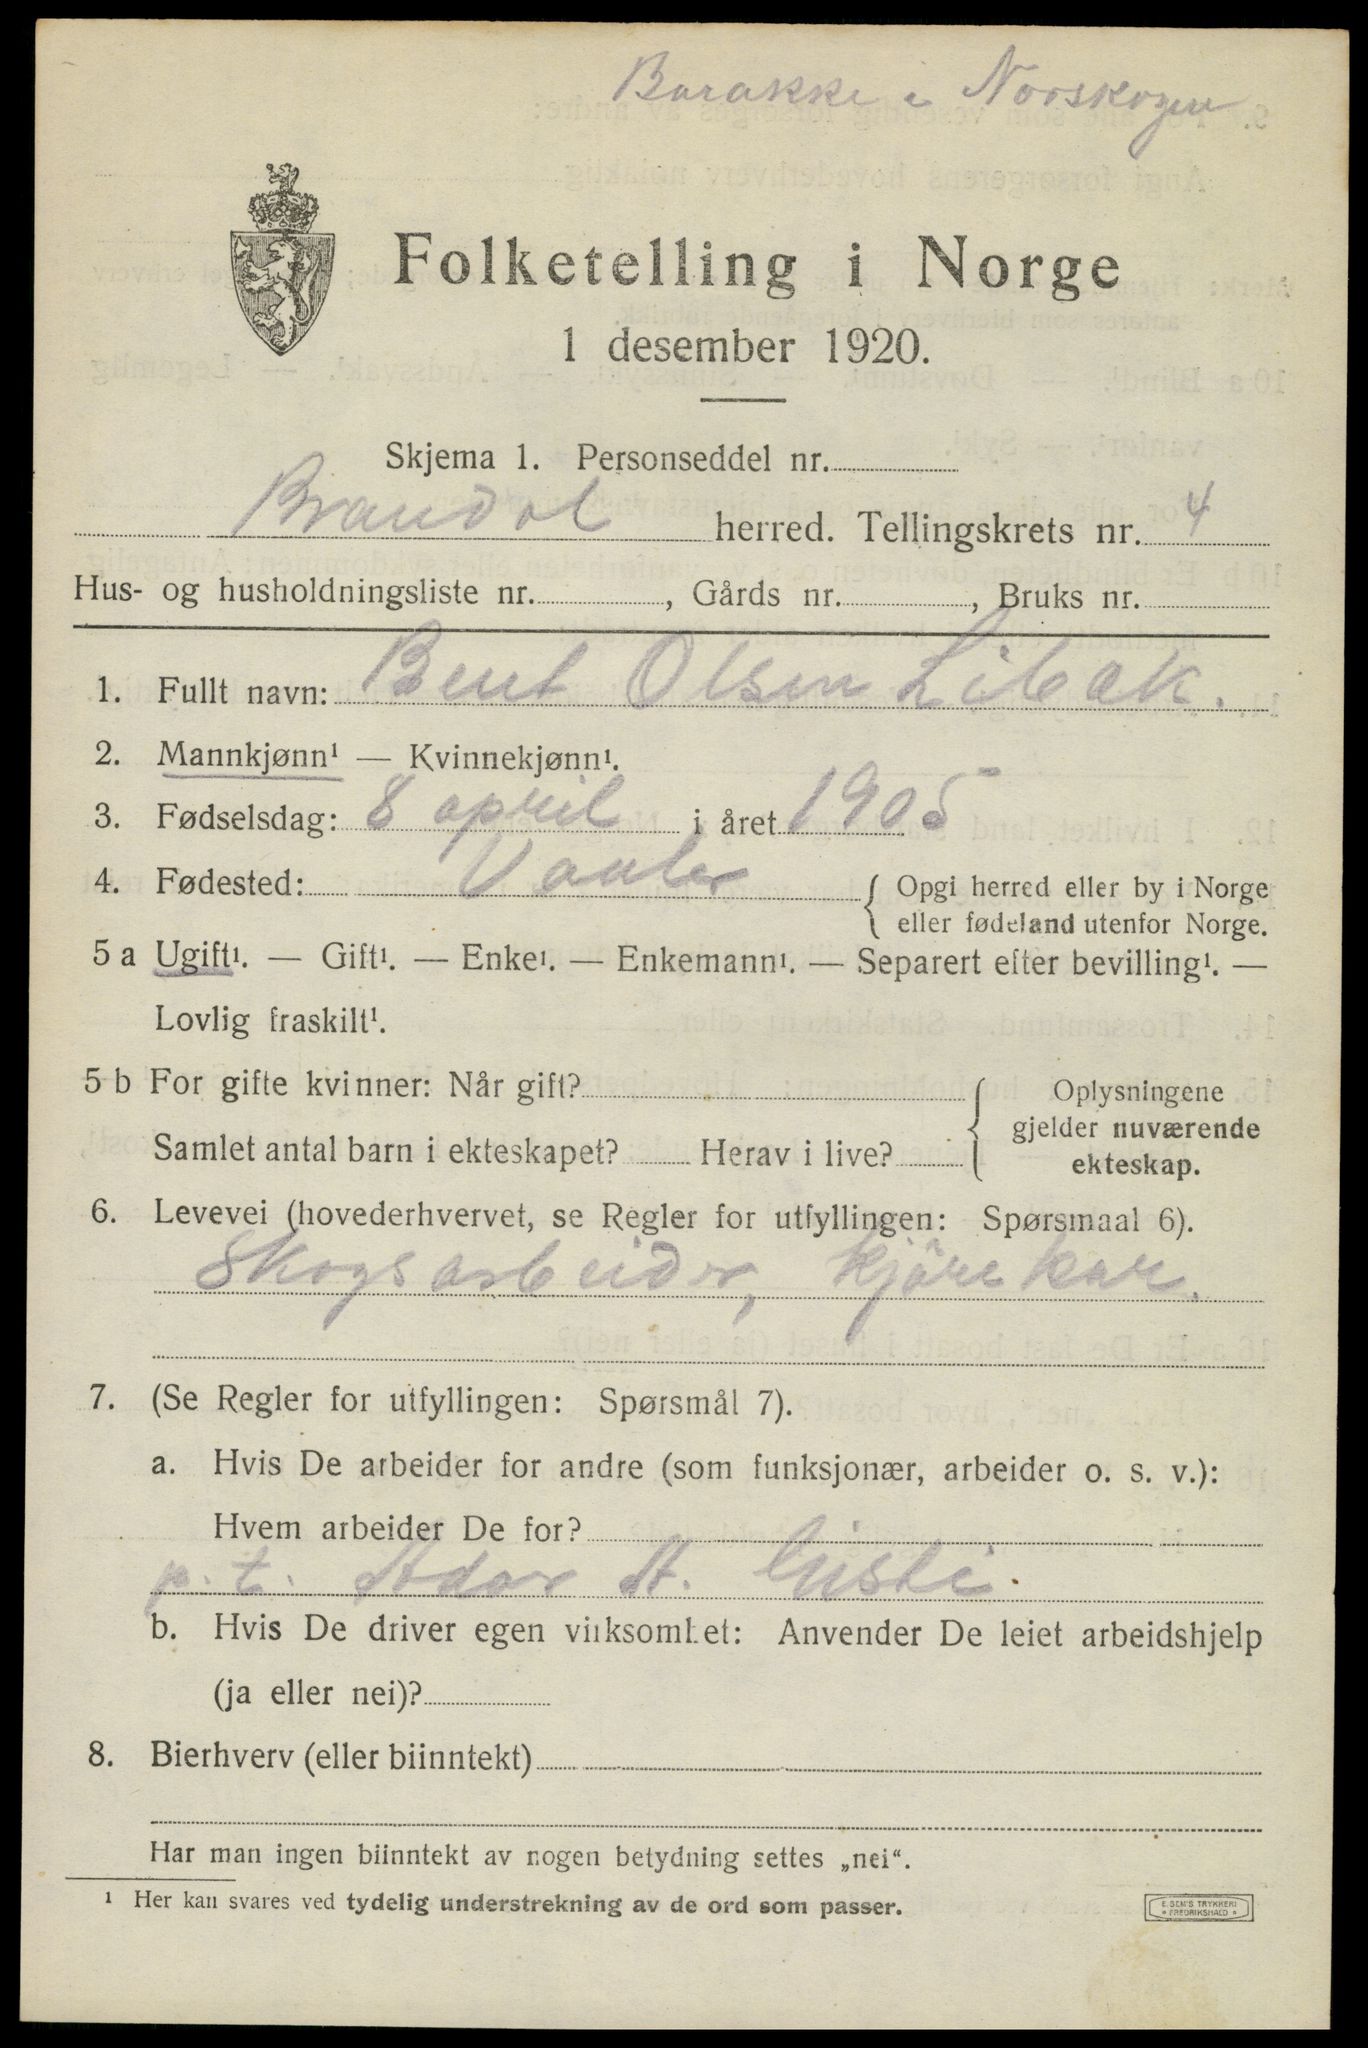 Barakke i Norskogen
Folketelling i Norge
1 desember 1920.
Skjema 1. Personseddel nr.
Brandval herred. Tellingskrets nr. 4
Hus- og husholdningsliste nr. , Gårds nr. , Bruks nr.
1. Fullt navn: Bent Olsen Libak.
2. Mannkjønn¹ — Kvinnekjønn¹.
3. Fødselsdag: 8 april i året 1905
4. Fødested: Vaaler { Opgi herred eller by i Norge
eller fødeland utenfor Norge.
5 a Ugift¹. — Gift¹. — Enke¹. — Enkemann¹. — Separert efter bevilling¹. —
Lovlig fraskilt¹.
5 b For gifte kvinner: Når gift? { Oplysningene
gjelder nuværende
Samlet antal barn i ekteskapet? Herav i live? ekteskap.
6. Levevei (hovederhvervet, se Regler for utfyllingen: Spørsmaal 6).
Skogsarbeider, kjörekar.
7. (Se Regler for utfyllingen: Spørsmål 7).
a. Hvis De arbeider for andre (som funksjonær, arbeider o. s. v.):
Hvem arbeider De for?
p.t. A.
b. Hvis De driver egen virksomhet: Anvender De leiet arbeidshjelp
(ja eller nei)?
8. Bierhverv (eller biinntekt)
Har man ingen biinntekt av nogen betydning settes „nei“.
¹ Her kan svares ved tydelig understrekning av de ord som passer.
E. SEM'S TRYKKERI
* FREDRIKSHALD *